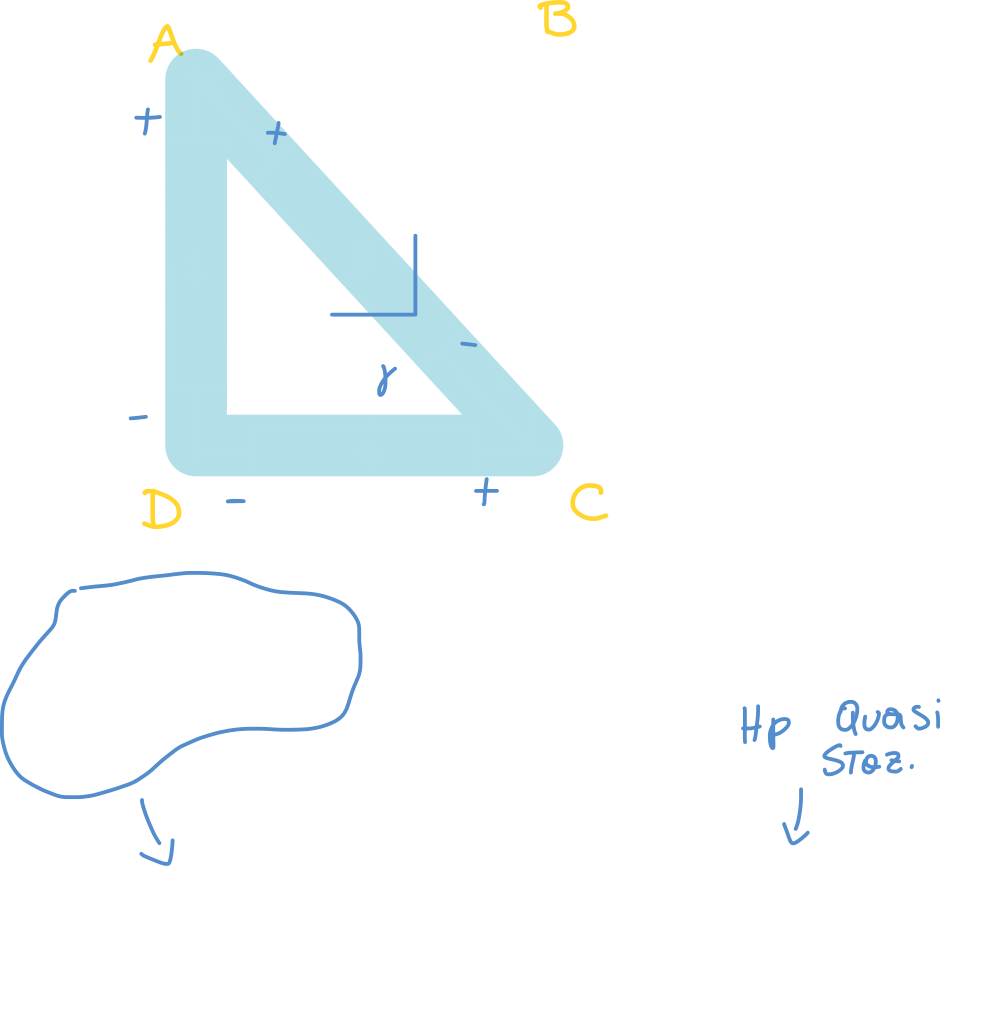 A
B
+
+
-
γ
-
D
-
+
C
Hp Quasi
Staz.